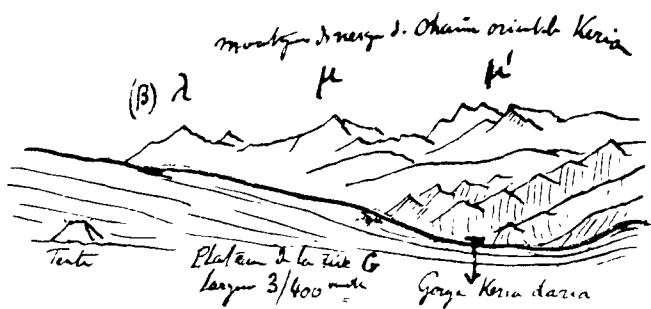 montagne de neige d. chaîne orientale Keria
(β) λ μ μ'
Tente
Plateau de la rive G
largeur 3/400
Gorge Keria daria